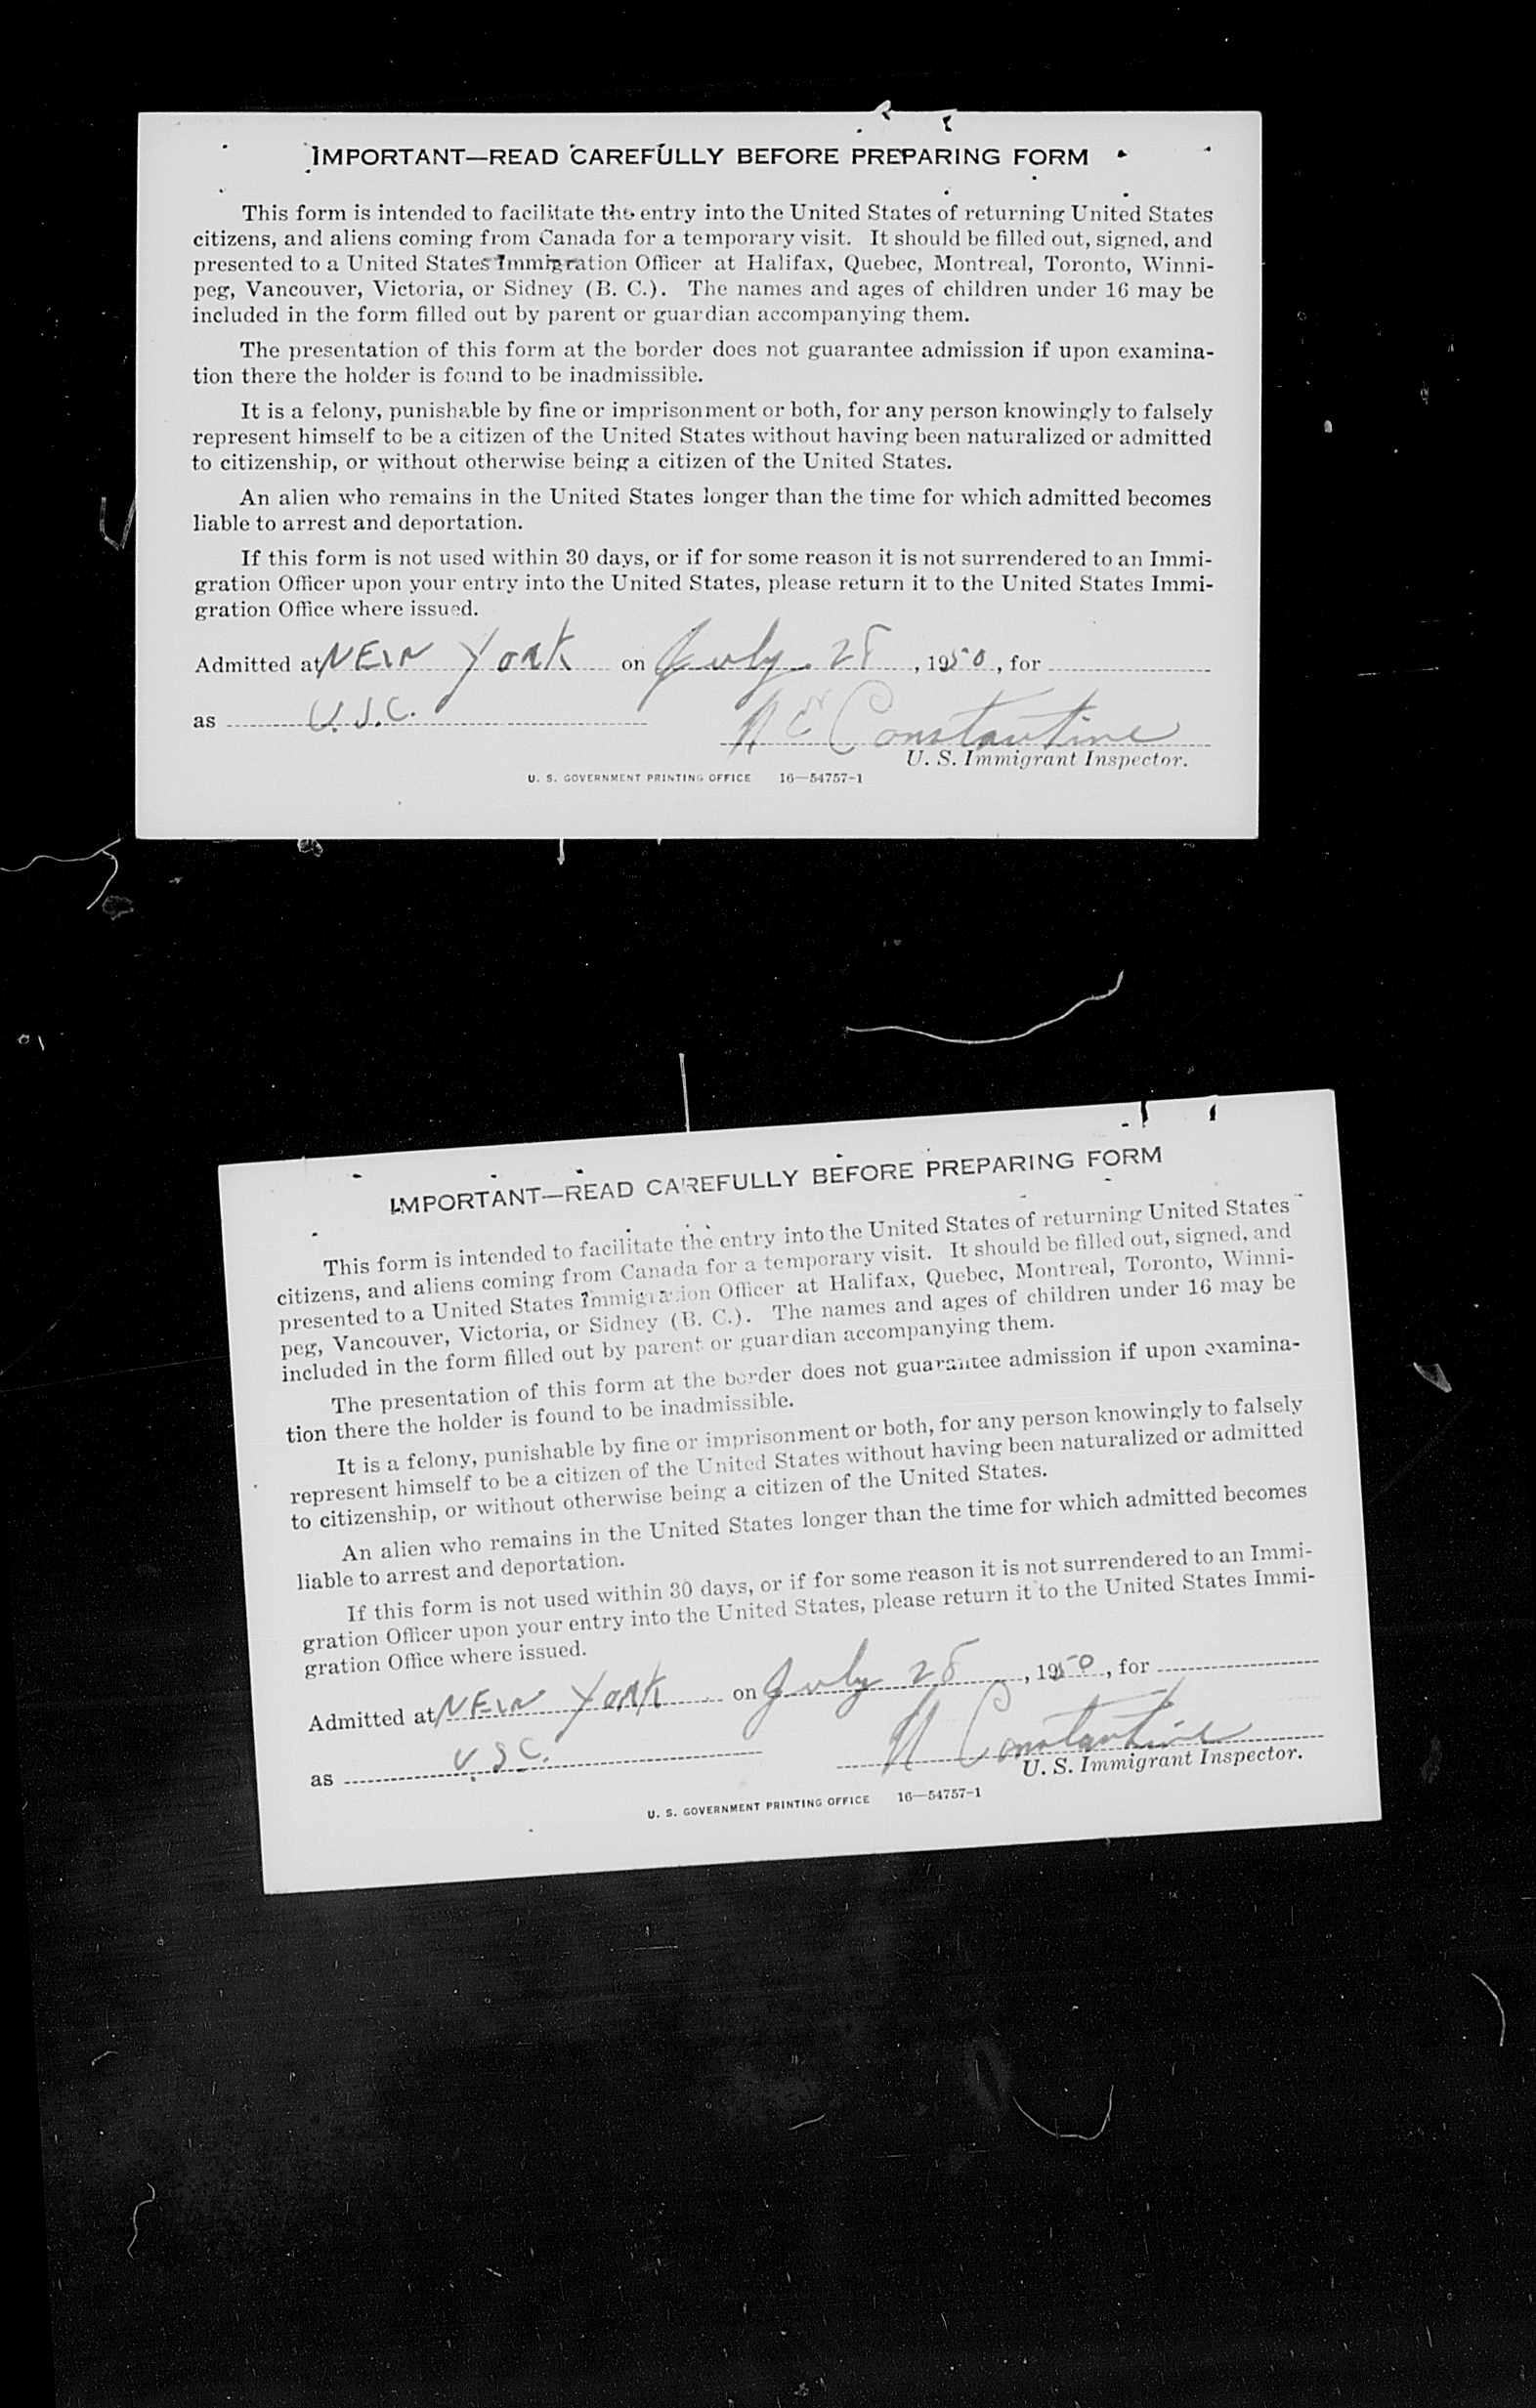 IMPORTANT—READ CAREFULLY BEFORE PREPARING FORM
This form is intended to facilitate the entry into the United States of returning United States
citizens, and aliens coming from Canada for a temporary visit. It should be filled out, signed, and
presented to a United States Immigration Officer at Halifax, Quebec, Montreal, Toronto, Winni-
peg, Vancouver, Victoria, or Sidney (B. C.). The names and ages of children under 16 may be
included in the form filled out by parent or guardian accompanying them.
The presentation of this form at the border does not guarantee admission if upon examina-
tion there the holder is found to be inadmissible.
It is a felony, punishable by fine or imprisonment or both, for any person knowingly to falsely
represent himself to be a citizen of the United States without having been naturalized or admitted
to citizenship, or without otherwise being a citizen of the United States.
An alien who remains in the United States longer than the time for which admitted becomes
liable to arrest and deportation.
If this form is not used within 30 days, or if for some reason it is not surrendered to an Immi-
gration Officer upon your entry into the United States, please return it to the United States Immi-
gration Office where issued.
Admitted at NEW YORK on July 28, 1950, for
as U.S.C. Constantine
U. S. Immigrant Inspector.
U. S. GOVERNMENT PRINTING OFFICE 16—54757-1
IMPORTANT—READ CAREFULLY BEFORE PREPARING FORM
This form is intended to facilitate the entry into the United States of returning United States
citizens, and aliens coming from Canada for a temporary visit. It should be filled out, signed, and
presented to a United States Immigration Officer at Halifax, Quebec, Montreal, Toronto, Winni-
peg, Vancouver, Victoria, or Sidney (B. C.). The names and ages of children under 16 may be
included in the form filled out by parent or guardian accompanying them.
The presentation of this form at the border does not guarantee admission if upon examina-
tion there the holder is found to be inadmissible.
It is a felony, punishable by fine or imprisonment or both, for any person knowingly to falsely
represent himself to be a citizen of the United States without having been naturalized or admitted
to citizenship, or without otherwise being a citizen of the United States.
An alien who remains in the United States longer than the time for which admitted becomes
liable to arrest and deportation.
If this form is not used within 30 days, or if for some reason it is not surrendered to an Immi-
gration Officer upon your entry into the United States, please return it to the United States Immi-
gration Office where issued.
Admitted at NEW YORK on July 28, 1950, for
as U.S.C. Constantine
U. S. Immigrant Inspector.
U. S. GOVERNMENT PRINTING OFFICE 16—54757-1